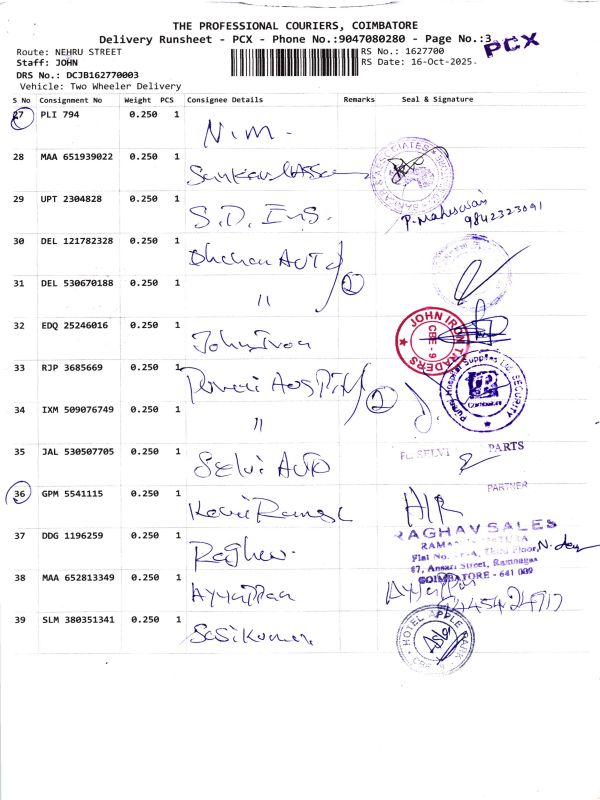 THE PROFESSIONAL COURIERS, COIMBATORE
Delivery Runsheet - PCX - Phone No.:9047080280 - Page No.:3
PCX
Route: NEHRU STREET
RS No.: 1627700
Staff: JOHN
RS Date: 16-Oct-2025
DRS No.: DCJB162770003
Vehicle: Two Wheeler Delivery
S No Consignment No Weight PCS Consignee Details Remarks Seal & Signature
27 PLI 794 0.250 1 N.M.
28 MAA 651939022 0.250 1
29 UPT 2304828 0.250 1 S.D. Ins. P. Maheswari
9842323091
30 DEL 121782328 0.250 1 Auto
31 DEL 530670188 0.250 1 11 2
32 EDQ 25246016 0.250 1 John Iron JOHN IRON TRADERS CBE - 9
33 RJP 3685669 0.250 1
34 IXM 509076749 0.250 1 11 2
35 JAL 530507705 0.250 1 Selvi Auto SELVI PARTS
PARTNER
36 GPM 5541115 0.250 1
37 DDG 1196259 0.250 1 Raghav RAGHAV SALES
Third Floor,
87, Ansari Street, Ramnagar
COIMBATORE - 641 009
38 MAA 652813349 0.250 1 Ayyappan
39 SLM 380351341 0.250 1 Sasikumar HOTEL APPLE PARK